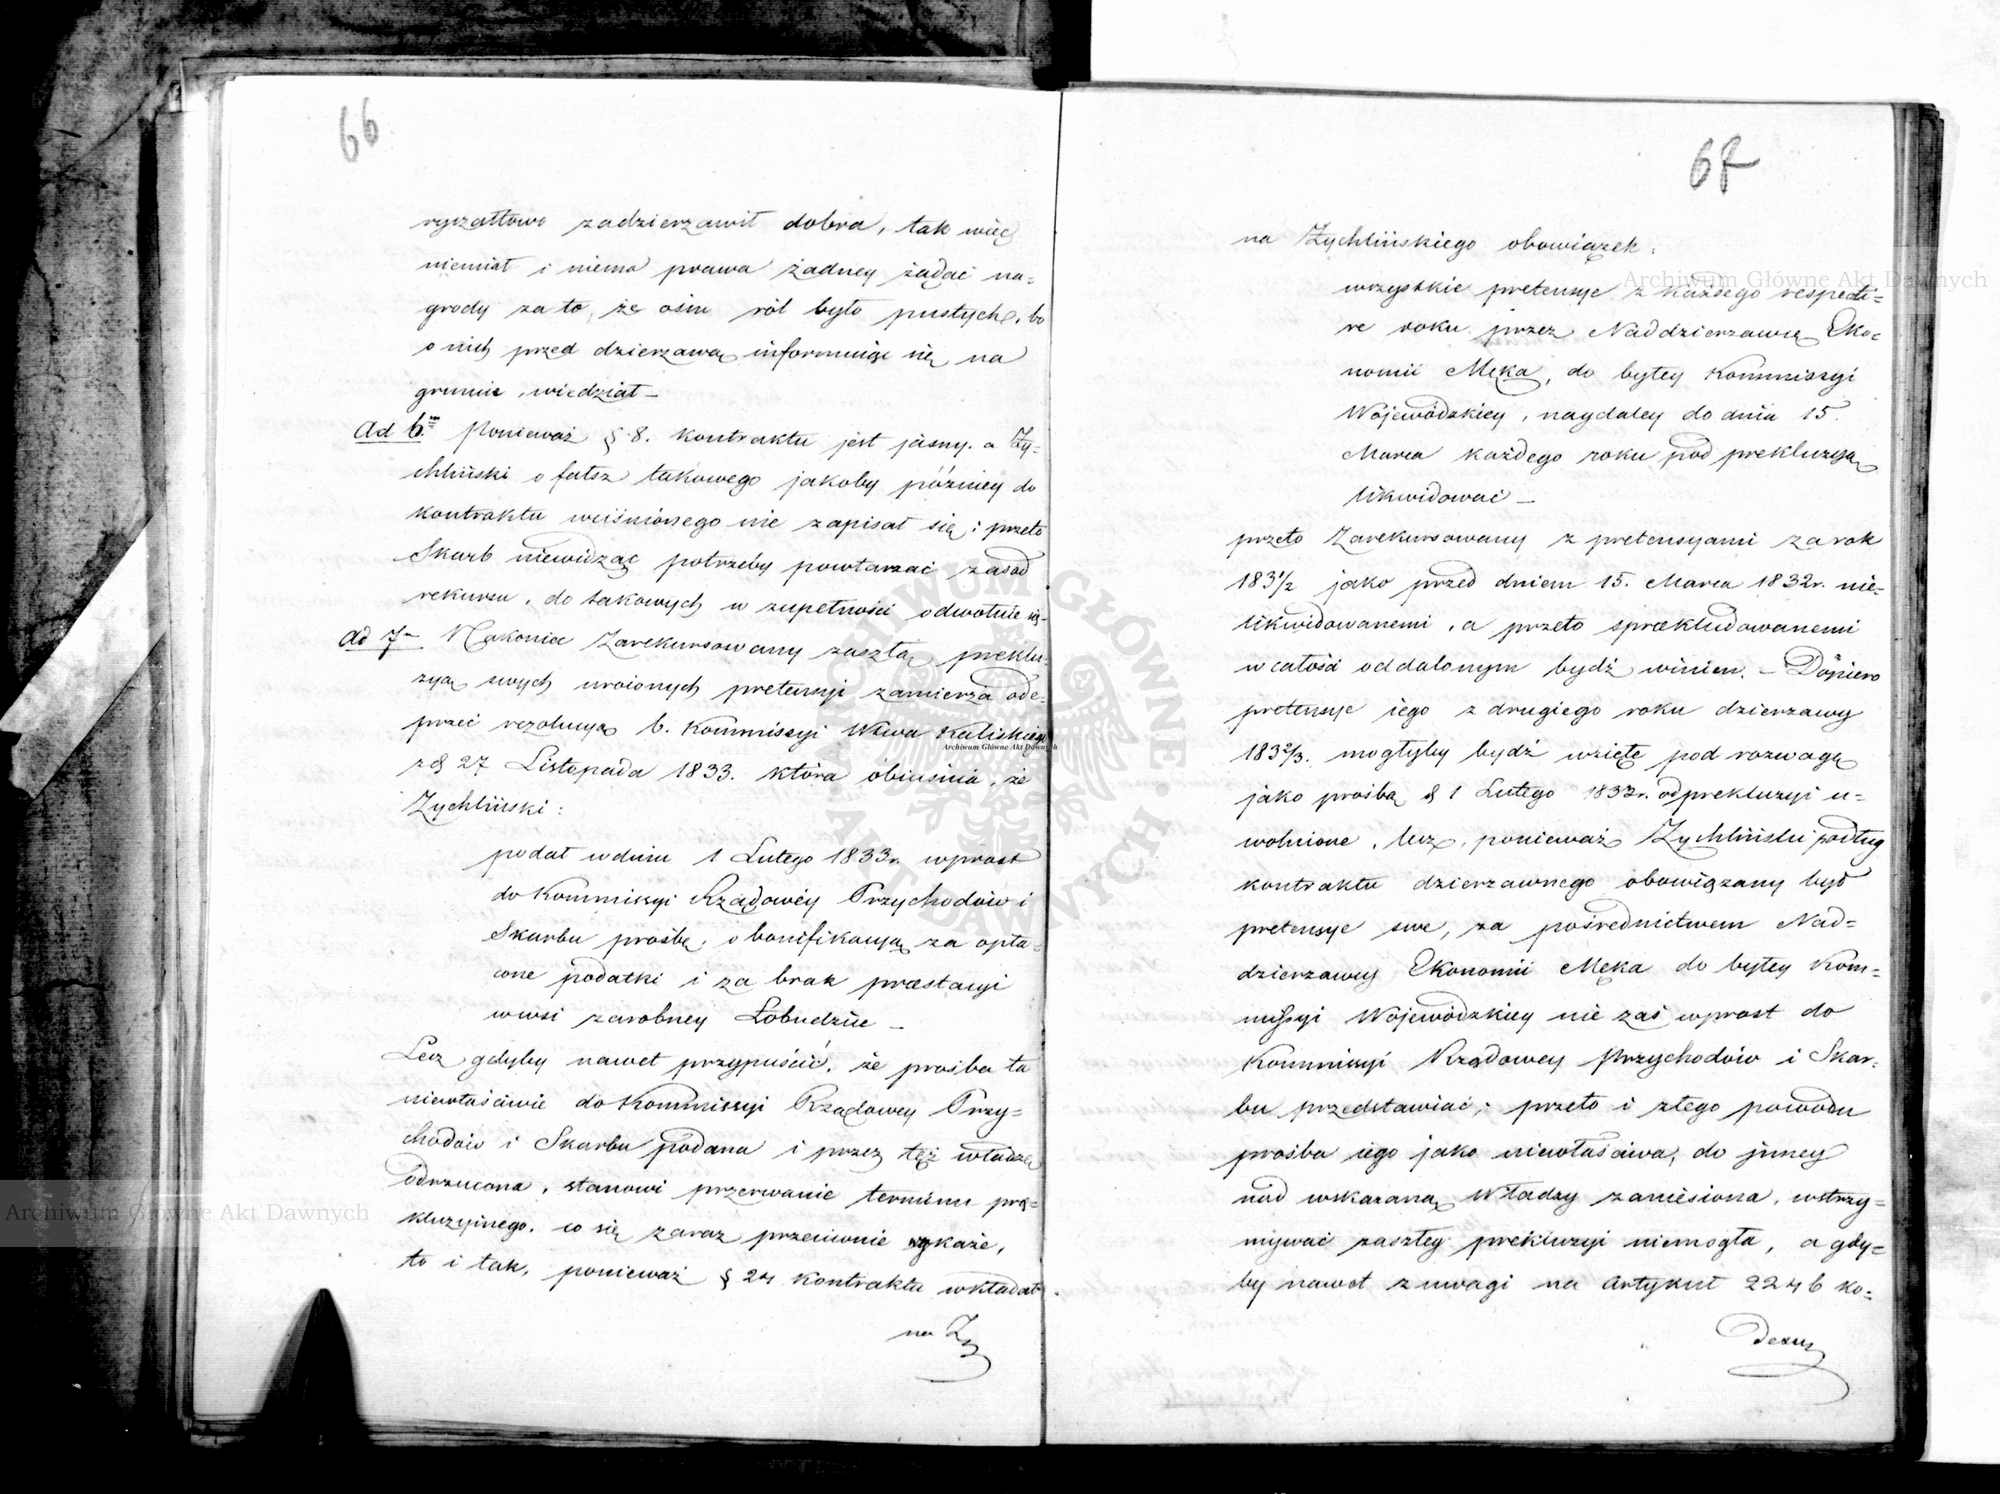 66
ryczałtowo zadzierzawił dobra, tak więc
niemiał i niema prawa żadney żądać na=
grody za to, że ośm ról było pustych, bo
o nich przed dzierzawą informuiąc się na
gruncie, wiedział —
Ad 6. Ponieważ § 8. kontraktu jest jasny. a Ży=
chliński o fałsz takowego jakoby późniey do
kontraktu weiśnionego nie zapisał się; przeto
Skarb niewidząc potrzeby powtarzać zasad
rekursu, do takowych w zupełności odwołuie się.
Ad 7 Nakoniec Zarekursowany zaszłą preklu=
zyą swych uroionych pretensyi zamierza ode=
przeć rezolucyą b. Kommissyi Wdztwa Kaliskiego
z d 27 Listopada 1833. która obiaśnia, że
Zychliński:
podał w dniu 1 Lutego 1833 r. wprost
do Kommissyi Rządowéy Przychodów i
Skarbu prośbę, o bonifikacyą za opła=
cone podatki i za brak præstacyi
w wsi zarobney Łobudzice —
Lecz gdyby nawet przypuścić, że prośba ta
niewłaściwie do Kommissyi Rządowey Przy=
chodów i Skarbu podana i przez tęż władzę
odrzucona, stanowi przerwanie terminu pre=
kluzyinego, co się zaraz przeciwnie wykaże,
to i tak, ponieważ § 24 kontraktu wkładał
na Ż
67
na Żychlińskiego obowiązek:
wszystkie pretensye z każdego respecti=
ve roku przez Naddzierzawcę Eko=
nomii Męka, do byłey Kommissyi
Wojewódzkiey, naydaley do dnia 15.
Marca każdego roku pod prekluzyą
likwidować —
przeto Zarekursowany z pretensyami za rok
183½ jako przed dniem 15. Marca 1832 r. nie=
likwidowanemi, a przeto sprekludowanemi
w całości oddalonym bydź winien. — Dopiero
pretensye iego z drugiego roku dzierzawy
183⅔. mogłyby bydź wzięte pod rozwagę
jako prośbą d 1 Lutego 1833 r. od prekluzyi u=
wolnione, lecz, ponieważ Żychliński podług
kontraktu dzierzawnego obowiązany był
pretensye swe, za pośrednictwem Nad=
dzierzawcy Ekonomii Męka do byłey Kom=
missyi Wojewódzkiey nie zaś wprost do
Kommissyi Rządowey Przychodów i Skar=
bu przedstawiać; przeto i z tego powodu
prośba iego jako niewłaściwa, do inney
nad wskazaną Władzy zaniesiona, wstrzy=
mywać zaszłey prekluzyi niemogła, a gdy=
by nawet z uwagi na Artykuł 2246 ko=
dexu
Archiwum Główne Akt Dawnych
Archiwum Główne Akt Dawnych
Archiwum Główne Akt Dawnych
ARCHIWUM GŁÓWNE AKT DAWNYCH